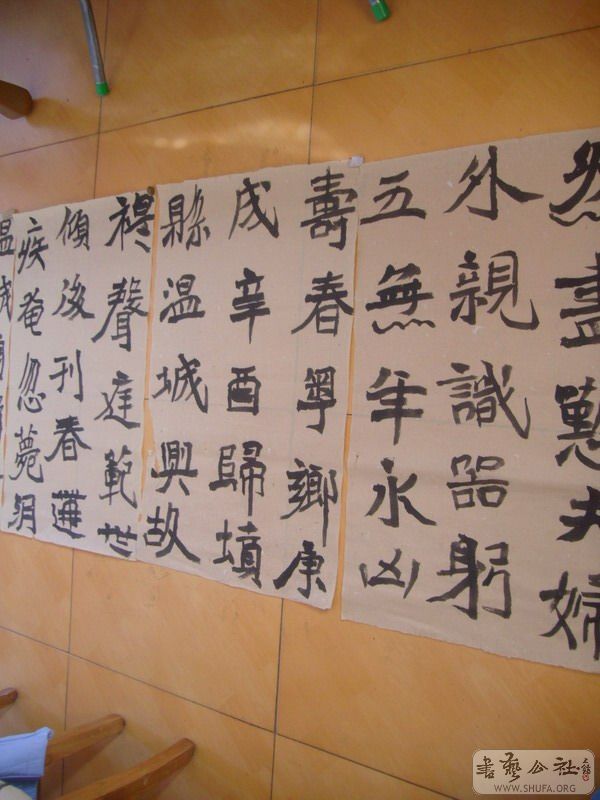 然盡懃夫婦
外親識器躬
五無年永凶
壽春寧鄉康
戌辛酉歸墳
縣溫城興故
聲庭範世
傾後刊春
疾奄忽薨
溫城
書藝公社
WWW.SHUFA.ORG